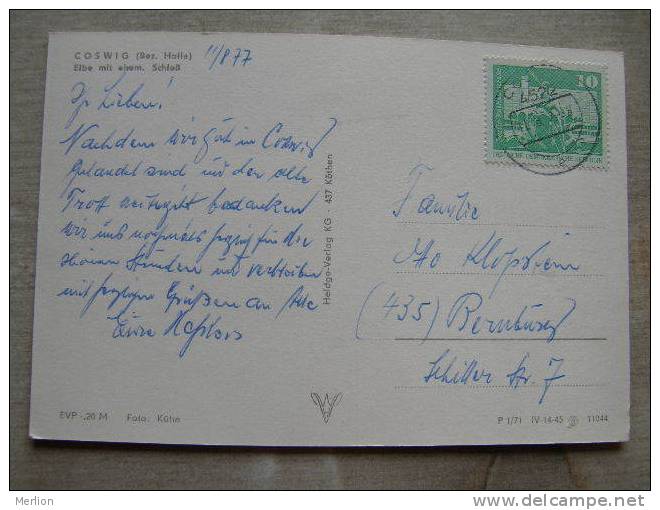 COSWIG (Bez. Halle)
Elbe mit ehem. Schloß
11/8 77
Ihr Lieben!
Nachdem wir gut in Coswig
gelandet sind und der alte
Trott weitergeht bedanken
wir uns nochmals für die
Stunden und verbleiben
mit Grüßen an Alle
Eure
Heldge-Verlag KG 437 Köthen
10
Familie
Otto Klopstein
(435) Bernburg
Schiller Str. 7
EVP -,20 M Foto: Kühn
P 1/71 IV-14-45 11044
Merlion
http://www.delcampe.net